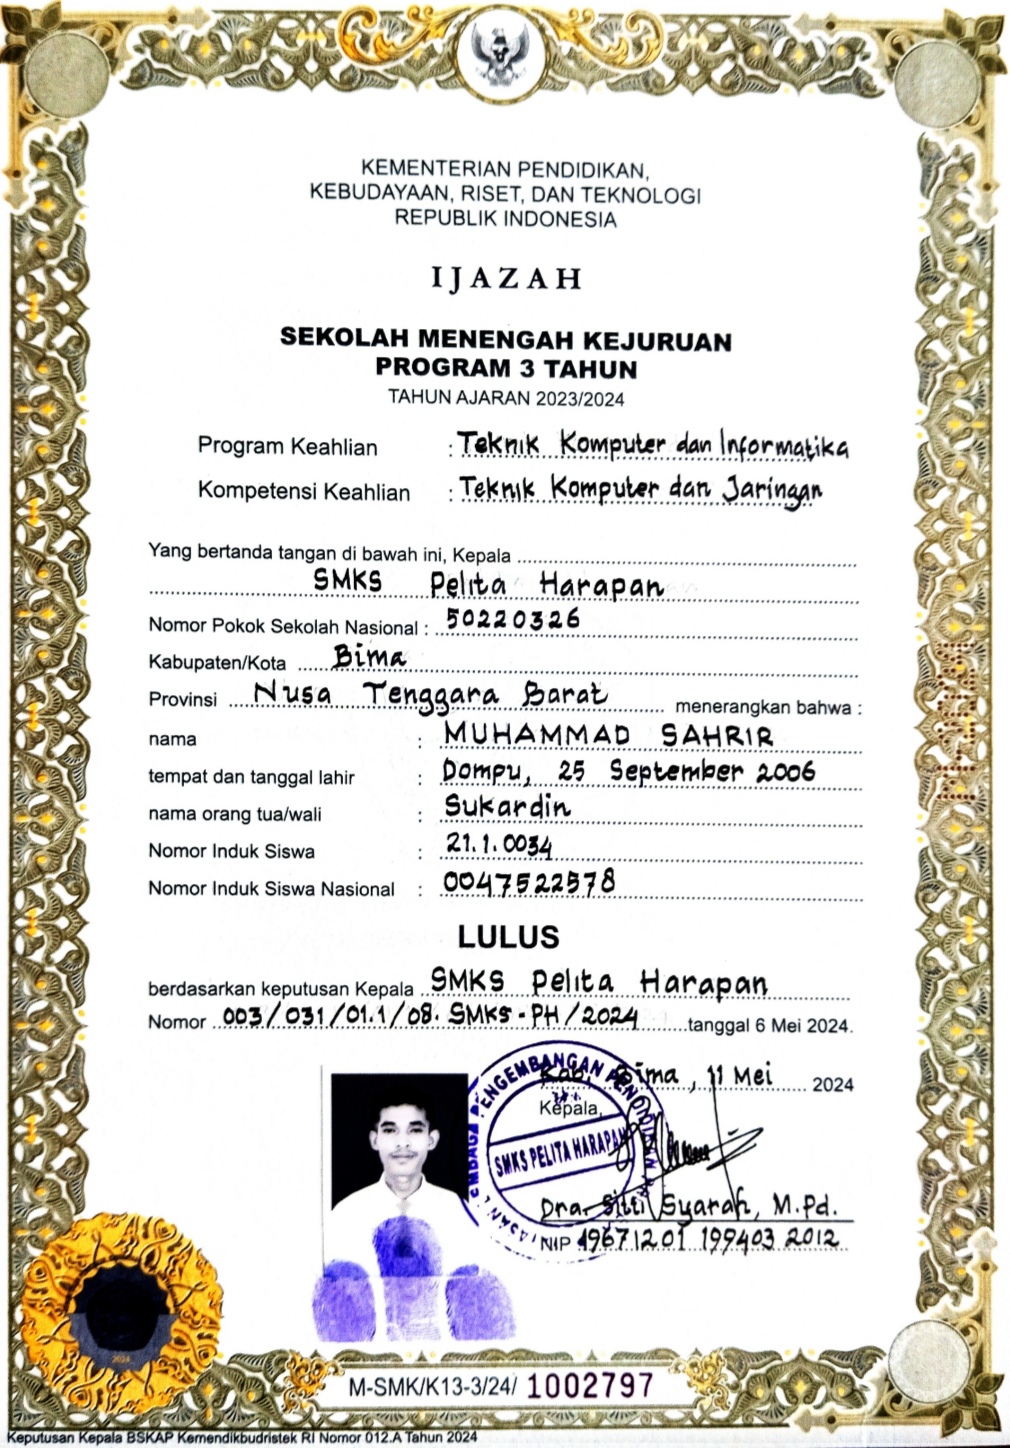 KEMENTERIAN PENDIDIKAN,
KEBUDAYAAN, RISET, DAN TEKNOLOGI
REPUBLIK INDONESIA
IJAZAH
SEKOLAH MENENGAH KEJURUAN
PROGRAM 3 TAHUN
TAHUN AJARAN 2023/2024
Program Keahlian : Teknik Komputer dan Informatika
Kompetensi Keahlian : Teknik Komputer dan Jaringan
Yang bertanda tangan di bawah ini, Kepala
SMKS Pelita Harapan
Nomor Pokok Sekolah Nasional : 50220326
Kabupaten/Kota Bima
Provinsi Nusa Tenggara Barat menerangkan bahwa :
nama : MUHAMMAD SAHRIR
tempat dan tanggal lahir : Dompu, 25 September 2006
nama orang tua/wali : Sukardin
Nomor Induk Siswa : 21.1.0034
Nomor Induk Siswa Nasional : 0047522578
LULUS
berdasarkan keputusan Kepala SMKS Pelita Harapan
Nomor 003/031/01.1/08. SMKS-PH/2024 tanggal 6 Mei 2024.
Kab. Bima, 11 Mei 2024
Kepala,
PENGEMBANGAN PENDIDIKAN
SMKS PELITA HARAPAN
Dra. Sitti Syarah, M.Pd.
NIP 19671201 199403 2012
M-SMK/K13-3/24/ 1002797
Keputusan Kepala BSKAP Kemendikbudristek RI Nomor 012.A Tahun 2024